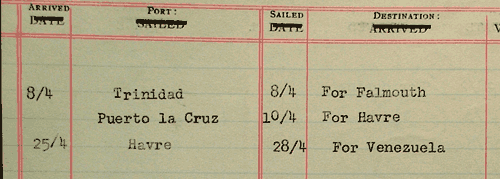 ARRIVED PORT: SAILED DESTINATION:
DATE SAILED DATE ARRIVED
8/4 Trinidad 8/4 For Falmouth
Puerto la Cruz 10/4 For Havre
25/4 Havre 28/4 For Venezuela